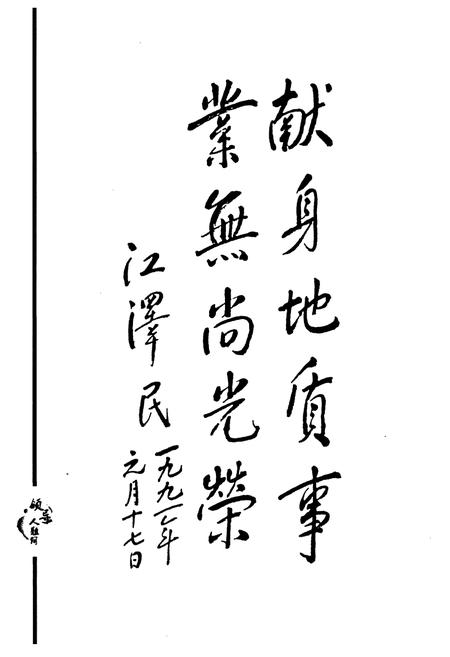 献身地质事
業無尚光榮
江澤民
一九九二年
元月十七日
领导
人题词